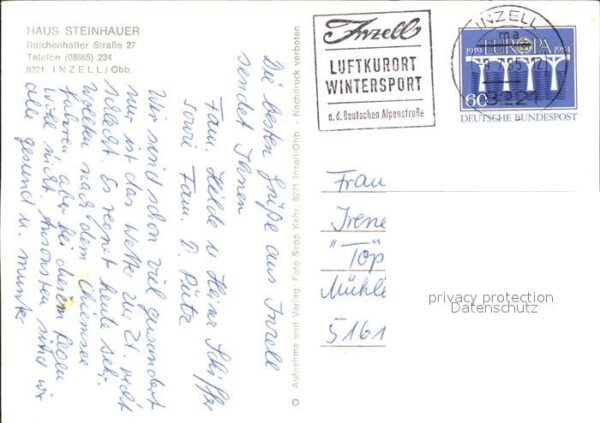 HAUS STEINHAUER
Reichenhaller Straße 27
Telefon (08665) 234
8221 INZELL/Obb.
Die besten Grüße aus Inzell
sendet Ihnen
Fam. Hilde u Heinz
sowie Fam. D.
Wir sind schon viel gewandert
nur ist das Wetter zur Zt. nicht
schlecht. Es regnet heute sehr.
Wollten nach dem Chiemsee
fahren aber bei diesem Regen
nicht. Ansonsten sind wir
alle gesund u. munter
Aufnahme und Verlag: Foto Sepp Kehr, 8221 Inzell/Obb. - Nachdruck verboten
Inzell
LUFTKURORT
WINTERSPORT
a. d. Deutschen Alpenstraße
INZELL
ma
8221
1959 EUROPA 1984
60
DEUTSCHE BUNDESPOST
Frau
Irene
"Töp"
Mühle
5161
privacy protection
Datenschutz